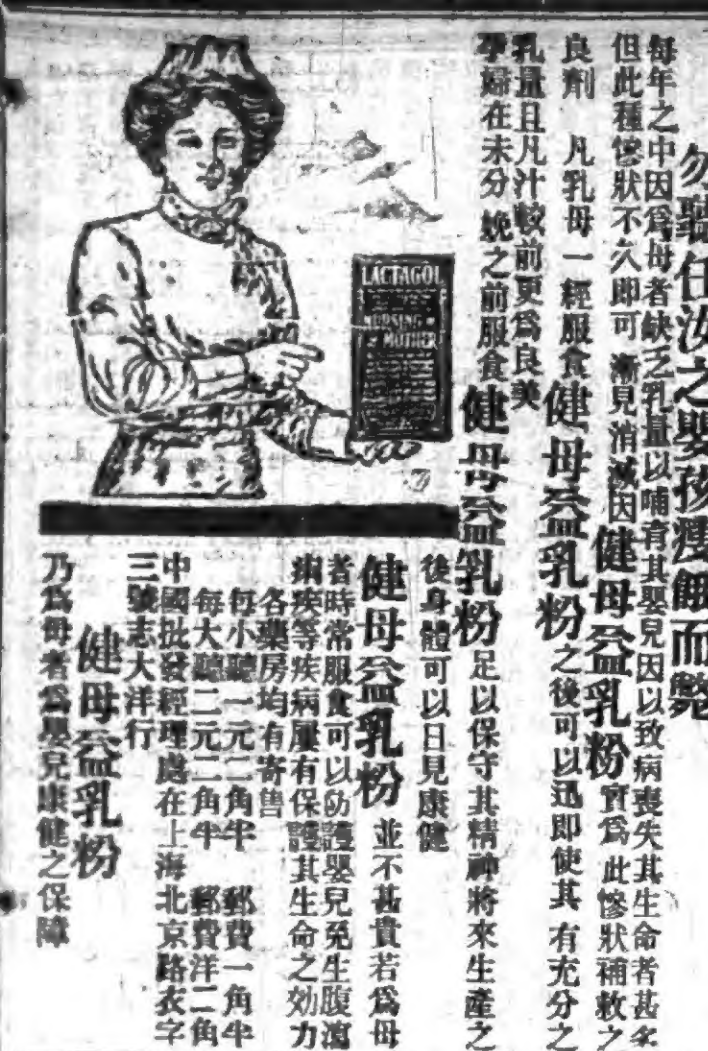 勿聽任汝之嬰孩瘦餓而斃
每年之中因爲母者缺乏乳量以哺育其嬰兒因以致病喪失其生命者甚多
但此種慘狀不久即可漸見消滅因健母益乳粉實爲此慘狀補救之
良劑 凡乳母一經服食健母益乳粉之後可以迅即使其有充分之
乳量且凡汁較前更爲良美
孕婦在未分娩之前服食健母益乳粉足以保守其精神將來生產之
後身體可以日見康健
健母益乳粉並不甚貴若爲母
者時常服食可以防護嬰兒免生腹瀉
痢疾等疾病屢有保護其生命之効力
各藥房均有寄售
每小聽一元二角半 郵費一角半
每大聽二元二角半 郵費洋二角
中國批發經理處在上海北京路衣字
三號志大洋行
健母益乳粉
乃爲母者爲嬰兒康健之保障
LACTAGOL
NURSING
MOTHER